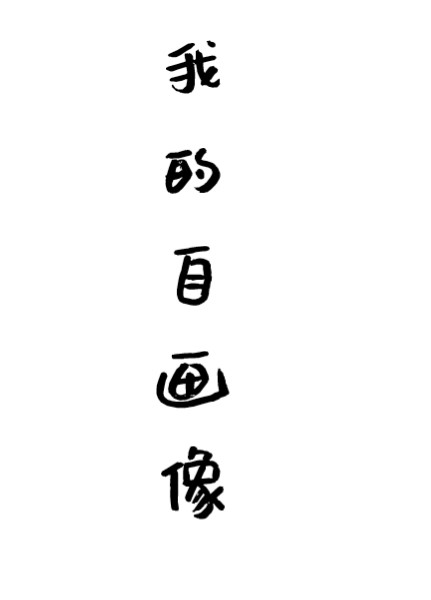 我的自画像